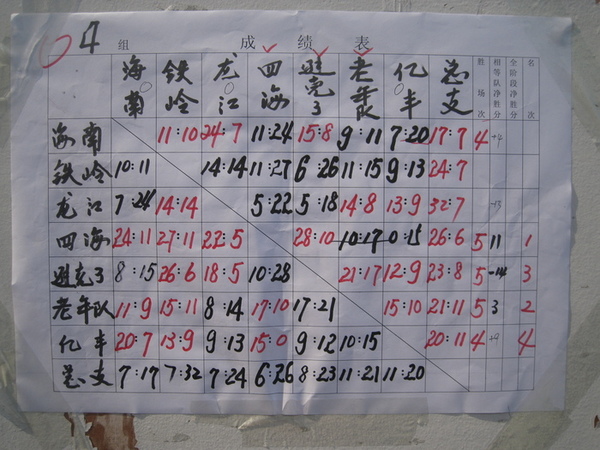 4 组 成 绩 表
海南 铁岭 龙江 四海 逃壳了 老年队 亿丰 总支 胜场次 相等队净胜分 全阶段净胜分 名次
海南 11:10 24:7 11:24 15:8 9:11 7:20 17:7 4 +4
铁岭 10:11 14:14 11:27 6:26 11:15 9:13 24:7
龙江 7:24 14:14 5:22 5:18 14:8 13:9 32:7 -13
四海 24:11 27:11 22:5 28:10 10:17 0:15 26:6 5 11 1
8:15 26:6 18:5 10:28 21:17 12:9 23:8 5 -14 3
老年队 11:9 15:11 8:14 17:10 17:21 15:10 21:11 5 3 2
亿丰 20:7 13:9 9:13 15:0 9:12 10:15 20:11 4 +9 4
总支 7:17 7:32 7:24 6:26 8:23 11:21 11:20